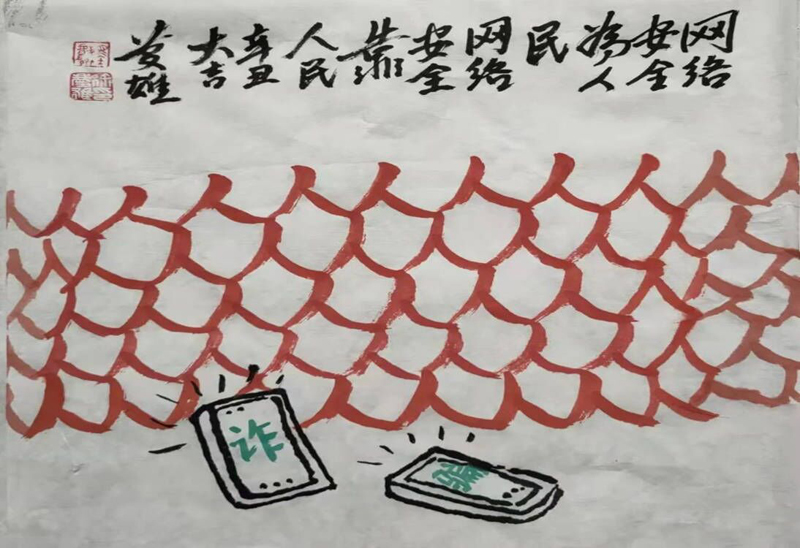 网络
安全
為人
民
网络
安全
靠
人民
辛丑
大吉
雄
诈